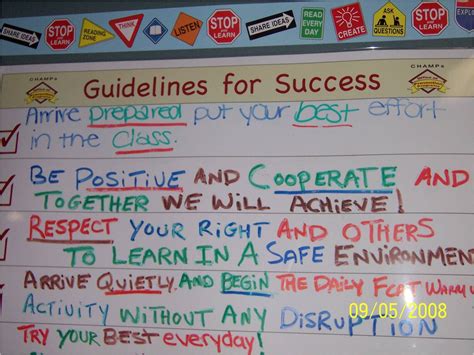 SHARE IDEAS
STOP & LEARN
READING ZONE
THINK
LISTEN
STOP & LEARN
SHARE IDEAS
READ EVERY DAY
CREATE
ASK QUESTIONS
STOP & LEARN
SHARE IDEAS
CHAMPs
Guidelines for Success
CHAMPs
Arrive prepared put your best effort
in the class.
BE POSITIVE AND COOPERATE AND
TOGETHER WE WILL ACHIEVE!
RESPECT YOUR RIGHT AND OTHERS
TO LEARN IN A SAFE ENVIRONMENT
ARRIVE QUIETLY AND BEGIN THE DAILY FCAT WARM U
ACTIVITY WITHOUT ANY DISRUPTION
TRY YOUR BEST everyday!
09/05/2008